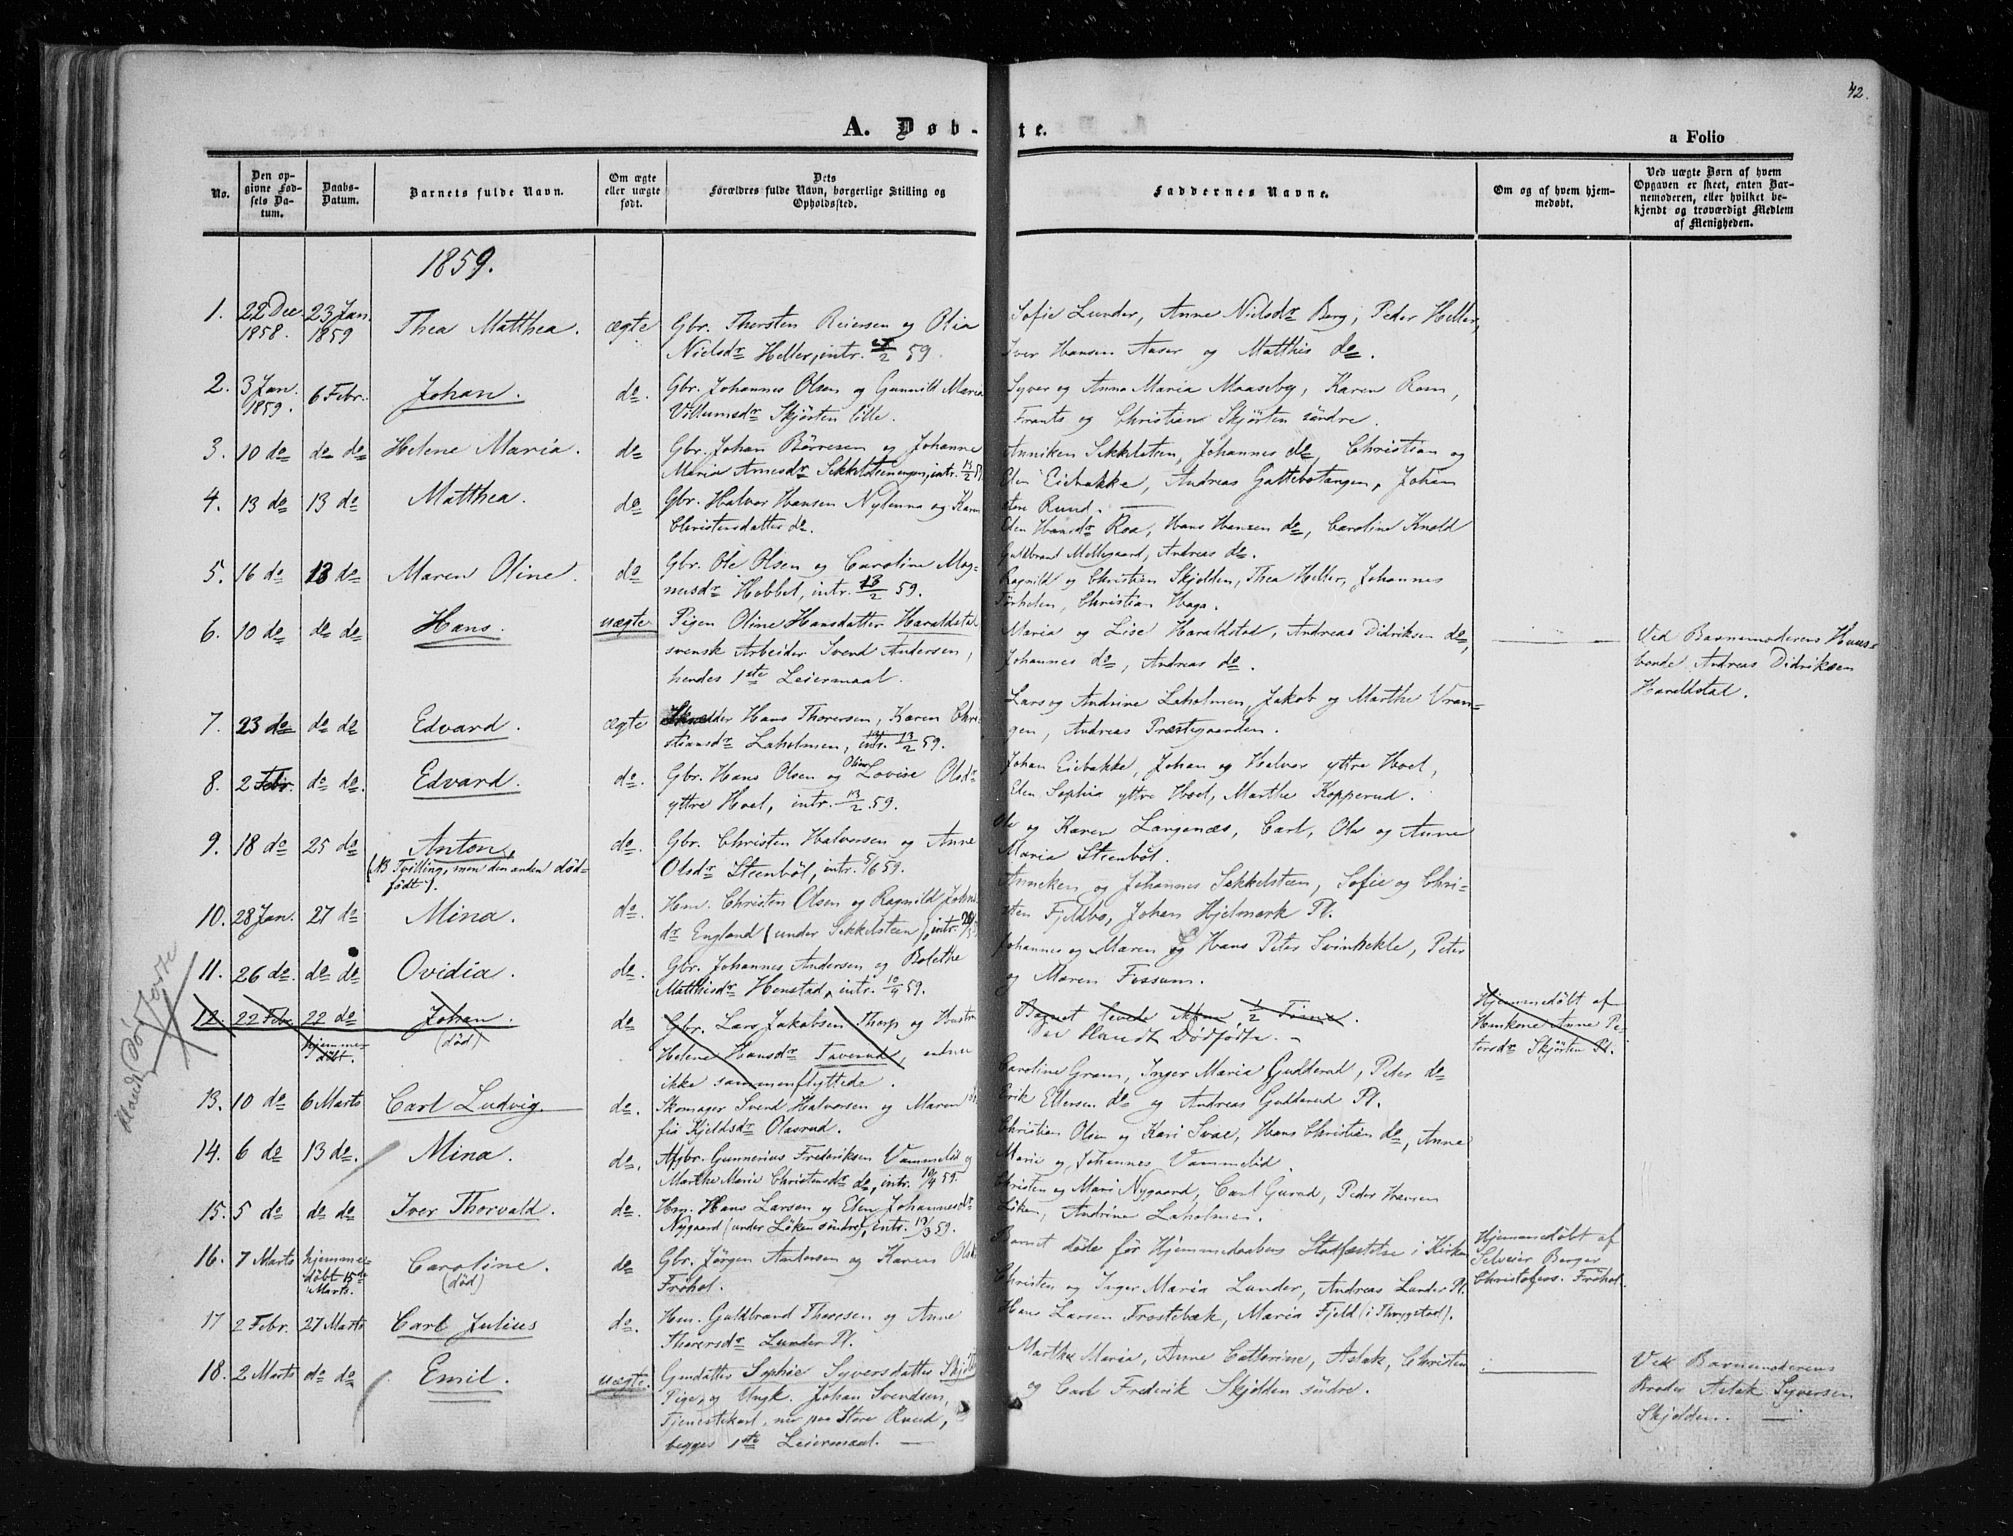 42.
A. Døb-te.
a Folio
No.
Den op-
givne Fød-
sels Da-
tum.
Daabs-
Datum.
Barnets fulde Navn.
Om ægte
eller uægte
født.
Dets
Forældres fulde Navn, borgerlige Stilling og
Opholdssted.
Faddernes Navne.
Om og af hvem hjem-
medøbt.
Ved uægte Børn af hvem
Opgaven er skeet, enten Bar-
nemoderen, eller hvilket be-
kjendt og troværdigt Medlem
af Menigheden.
1859.
1. 22 Dec 23 Jan. Thea Matthea. ægte Gbr. Thorsten Reiersen og Olia Sofie Lunder, Anne Nielsdr Berg, Peder Heller,
1858. 1859 Nielsdr Heller, intr. 59. Iver Hansen Aaser og Matthis do.
2. 3 Jan. 6 Febr. Johan. do. Gbr. Johannes Olsen og Gunnild Maria Syver og Anna Maria Maaseby, Karen Rom,
1859. Villumsdr Skjørten lille. Frants og Christian Skjørten søndre.
3. 10 do do do Helene Maria. do Gbr. Johan Børresen og Johanne Anniken Sekkelsten, Johannes do, Christian og
Maria Arnesdr Sekkelstenengen, intr. 13/2 59 Elen Eiebakke, Andreas Gattebotangen, Johan
4. 13 do 13 do Matthea. do Gbr. Halvor Hansen Nylenna og Karen store Ruud.
Christensdatter do. Elen Hansdr Roa, Hans Hansen do, Caroline Knold
Guldbrand Mellegaard, Andreas do.
5. 16 do 13 do Maren Oline. do Gbr. Ole Olsen og Caroline Mag- Ragnild og Christian Skjolden, Thea Heller, Johannes
nusdr Hobbel, intr. 13/2 59. Christian Haga.
6. 10 do do do Hans. uægte Pigen Oline Hansdatter Haraldstad Maria og Lise Haraldstad, Andreas Didriksen do, Ved Barnemoderens Huus-
svensk Arbeider Svend Andersen, Johannes do, Andreas do. bonde Andreas Didriksen
hendes 1ste Leiermaal. Haraldstad.
7. 23 do do do Edvard. ægte Skrædder Hans Thoresen, Karen Chri- Lars og Andrine Laholmen, Jakob og Marthe Vran-
stiansdr Laholmen, intr. 13/2 59. gen, Andreas Præstegaarden.
8. 2 Febr. do do. Edvard. do. Gbr. Hans Olsen og Oline Lovise Olsdr Johan Eiebakke, Johan og Halvor yttre Hoel,
yttre Hoel, intr. 13/2 59. Elen Sophia yttre Hoel, Marthe Kopperud.
9. 18 do 25 do Anton, do. Gbr. Christen Halvorsen og Anne Ole og Karen Langenæs, Carl, Ole og Anne
(NB Tvilling, men den anden død- Olsdr Steenbøl, intr. 5/6 59. Maria Steenbøl.
født).
10. 28 Jan. 27 do Mina. do. Hm. Christen Olsen og Ragnild Johns Anneken og Johannes Sekkelsteen, Sofie og Chri-
dr England (under Sekkelsteen), intr. sten Fjeldbo, Johan Hjelmark Pl.
11. 26 do. do do Ovidia. do. Gbr. Johannes Andersen og Bolethe Johannes og Maren og Hans Peter Svinkekle, Peter
Matthisdr Henstad, intr. 10/4 59. og Maren Fossum.
12. 22 Febr 22 do Johan. do Gbr. Lars Jakobsen Thorp og Hustru Barnet levede ikkun 1/2 Time. Hjemmedøbt af
hjemme- (død) Helene Hansdr Taverud, endnu Dødfødte. Huskone Anne Pe-
døbt. ikke sammenflyttede. tersdr Skjørten Pl.
13. 10 do 6 Marts Carl Ludvig. do. Skomager Svend Halvorsen og Maren So- Caroline Gram, Inger Maria Gudderud, Peder do
fia Kjeldsdr Olasrud. Erik Ellersen do og Andreas Gudderud Pl.
14. 6 do 13 do. Mina. do. Gunnerius Frederiksen Vammelid og Christian Olsen og Kari Svae, Hans Christian do, Anne
Marthe Marie Christensdr do, intr. 10/4 59. Marie og Johannes Vammelid.
15. 5 do do do Iver Thorvald. do. Hm. Hans Larsen og Elen Johannesdr Christen og Mari Nygaard, Carl Gurud, Peder Hansen
Nygaard (under Løken søndre), intr. 59. Løken, Andrine Laholmen.
16. 7 Marts hjemme- Caroline. do Gbr. Jørgen Andersen og Karen Olsdr Barnet døde før Hjemmedaabens Stadfæstelse i Kirken Hjemmedøbt af
døbt 15de (død) Frøhol. Selveier Børger
Marts. Christen og Inger Maria Lunder, Andreas Lunder Pl. Christofers. Frøhol.
17 2 Febr. 27 Marts Carl Julius do. Hm. Guldbrand Thoresen og Anne Hans Larsen Frostebæk, Maria Fjeld (i Thrygstad).
Thorersdr Lunder Pl.
18. 2 Marts do do Emil. uægte. Gmdatter Sophie Syversdatter Marthe Maria, Anne Catterine, Aslak, Christen Ved Barnemoderens
Pige, og Ungk. Johan Svendsen, og Carl Frederik Skjolden søndre. Broder Aslak Syversen
Tjenestekarl, nu paa Store Ruud, Skjolden.
begges 1ste Leiermaal.